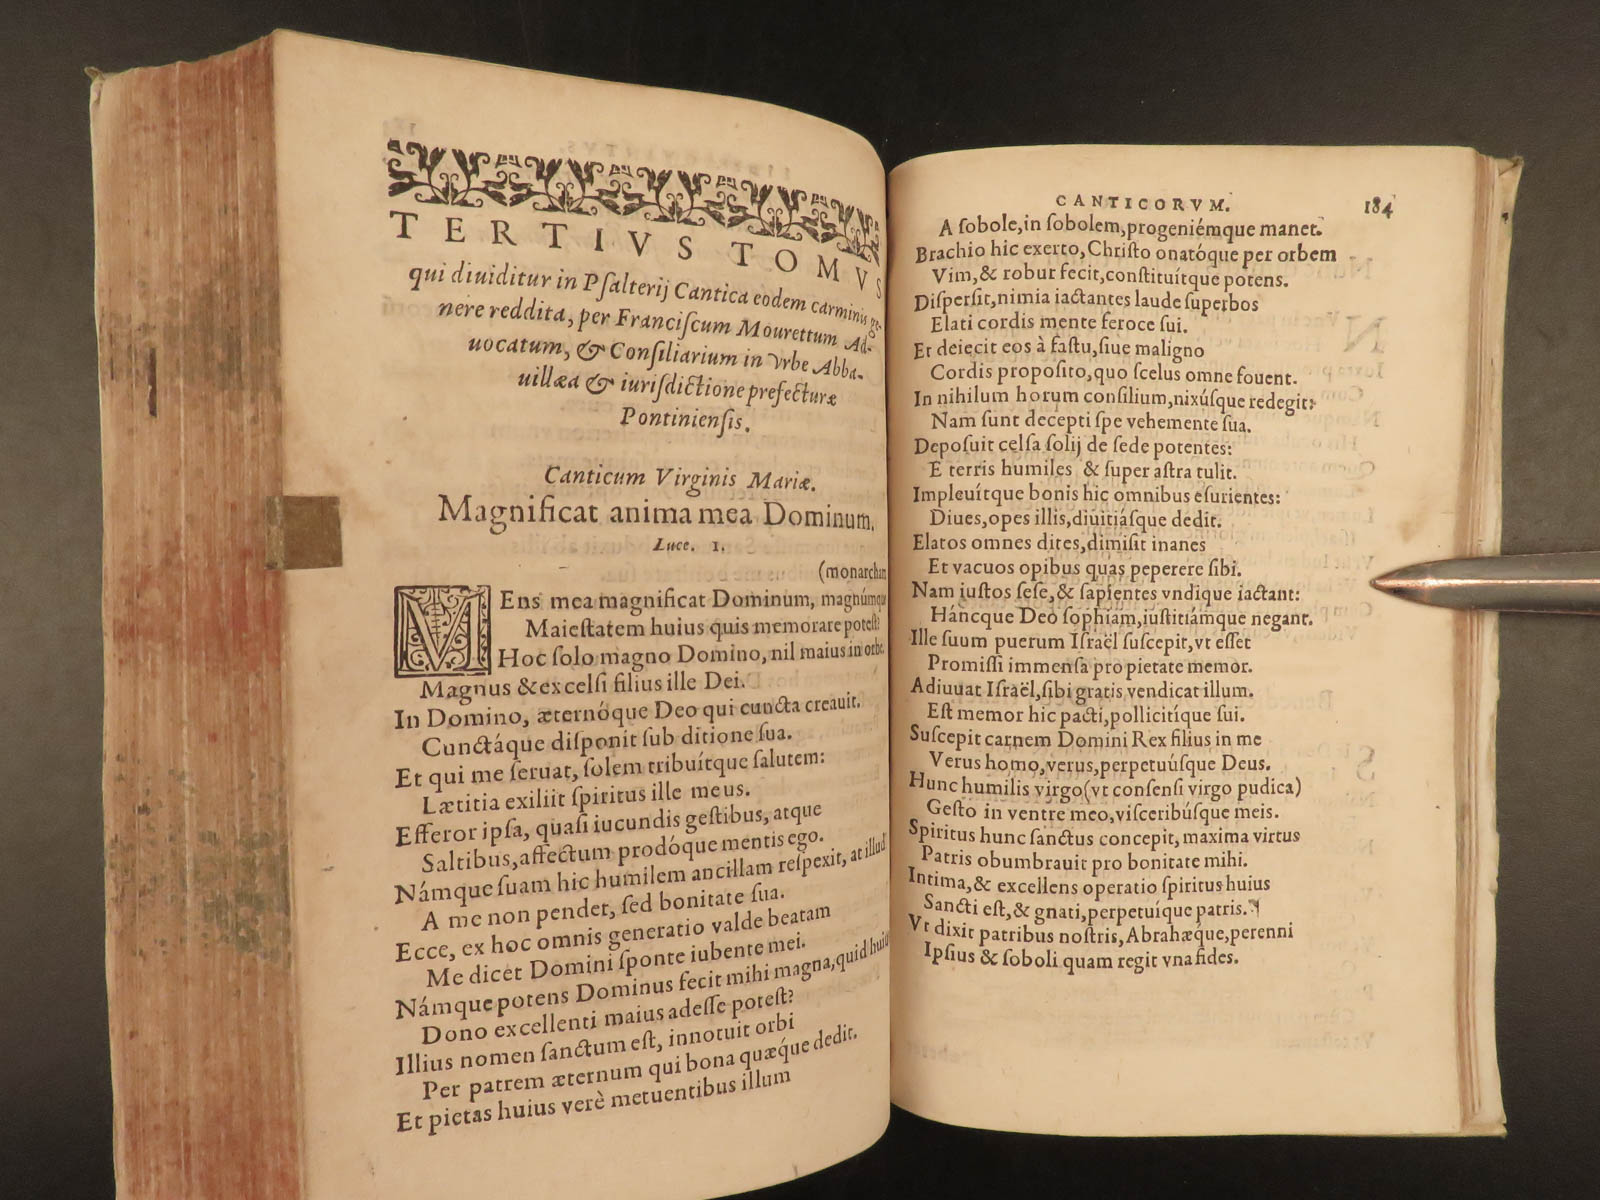 TERTIVS TOMVS
qui diuiditur in Pſalterij Cantica eodem carminis ge-
nere reddita, per Franciſcum Mourettum Ad-
uocatum, & Conſiliarium in vrbe Abba-
uillæa & iuriſdictione prefecturæ
Pontinienſis.
Canticum Virginis Mariæ.
Magnificat anima mea Dominum.
Luce. 1.
(monarcham
MEns mea magnificat Dominum, magnúmque
Maieſtatem huius quis memorare poteſt?
Hoc ſolo magno Domino, nil maius in orbe.
Magnus & excelſi filius ille Dei.
In Domino, æternóque Deo qui cuncta creauit.
Cunctáque diſponit ſub ditione ſua.
Et qui me ſeruat, ſolem tribuítque ſalutem:
Lætitia exiliit ſpiritus ille meus.
Efferor ipſa, quaſi iucundis geſtibus, atque
Saltibus, affectum prodóque mentis ego.
Námque ſuam hic humilem ancillam reſpexit, at illud
A me non pendet, ſed bonitate ſua.
Ecce, ex hoc omnis generatio valde beatam
Me dicet Domini ſponte iubente mei.
Námque potens Dominus fecit mihi magna, quid huius
Dono excellenti maius adeſſe poteſt?
Illius nomen ſanctum eſt, innotuit orbi
Per patrem æternum qui bona quæque dedit.
Et pietas huius verè metuentibus illum
CANTICORVM. 184
A ſobole, in ſobolem, progeniémque manet.
Brachio hic exerto, Chriſto onatóque per orbem
Vim, & robur fecit, conſtituítque potens.
Diſperſit, nimia iactantes laude ſuperbos
Elati cordis mente feroce ſui.
Et deiecit eos à faſtu, ſiue maligno
Cordis propoſito, quo ſcelus omne fouent.
In nihilum horum conſilium, nixúſque redegit:
Nam ſunt decepti ſpe vehemente ſua.
Depoſuit celſa ſolij de ſede potentes:
E terris humiles & ſuper aſtra tulit.
Impleuítque bonis hic omnibus eſurientes:
Diues, opes illis, diuitiáſque dedit.
Elatos omnes dites, dimiſit inanes
Et vacuos opibus quas peperere ſibi.
Nam iuſtos ſeſe, & ſapientes vndique iactant:
Háncque Deo ſophiam, iuſtitiámque negant.
Ille ſuum puerum Iſraël ſuſcepit, vt eſſet
Promiſſi immenſa pro pietate memor.
Adiuuat Iſraël, ſibi gratis vendicat illum.
Eſt memor hic pacti, pollicitíque ſui.
Suſcepit carnem Domini Rex filius in me
Verus homo, verus, perpetuúſque Deus.
Hunc humilis virgo (vt conſenſi virgo pudica)
Geſto in ventre meo, viſceribúſque meis.
Spiritus hunc ſanctus concepit, maxima virtus
Patris obumbrauit pro bonitate mihi.
Intima, & excellens operatio ſpiritus huius
Sancti eſt, & gnati, perpetuíque patris.
Vt dixit patribus noſtris, Abrahæque, perenni
Ipſius & ſoboli quam regit vna fides.